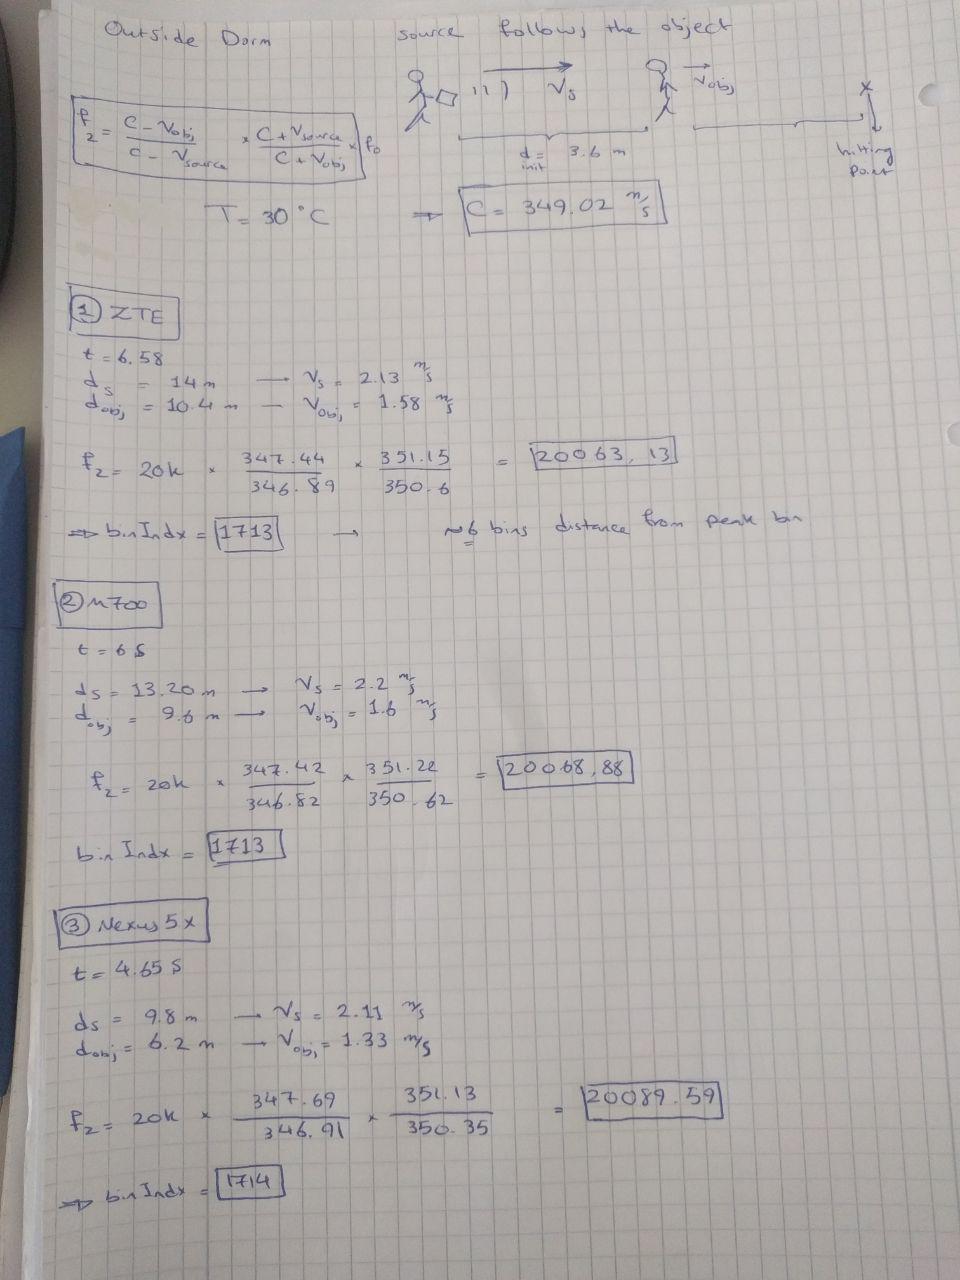 Outside Dorm source follows the object
f₂ = (C - Vobj)/(C - Vsource) × (C + Vsource)/(C + Vobj) × f₀
Vs
Vobj
d init = 3.6 m
hitting point
T = 30°C ⇒ C = 349.02 m/s
① ZTE
t = 6.58
ds = 14 m → Vs = 2.13 m/s
dobj = 10.4 m – Vobj = 1.58 m/s
f₂ = 20k × 347.44/346.89 × 351.15/350.6 = 20063,13
⇒ binIndx = 1713 → ~6 bins distance from peak bin
② M700
t = 6 s
ds = 13.20 m → Vs = 2.2 m/s
dobj = 9.6 m → Vobj = 1.6 m/s
f₂ = 20k × 347.42/346.82 × 351.22/350.62 = 20068,88
bin Indx = 1713
③ Nexus 5x
t = 4.65 s
ds = 9.8 m → Vs = 2.11 m/s
dobj = 6.2 m → Vobj = 1.33 m/s
f₂ = 20k × 347.69/346.91 × 351.13/350.35 = 20089.59
⇒ bin Indx = 1714